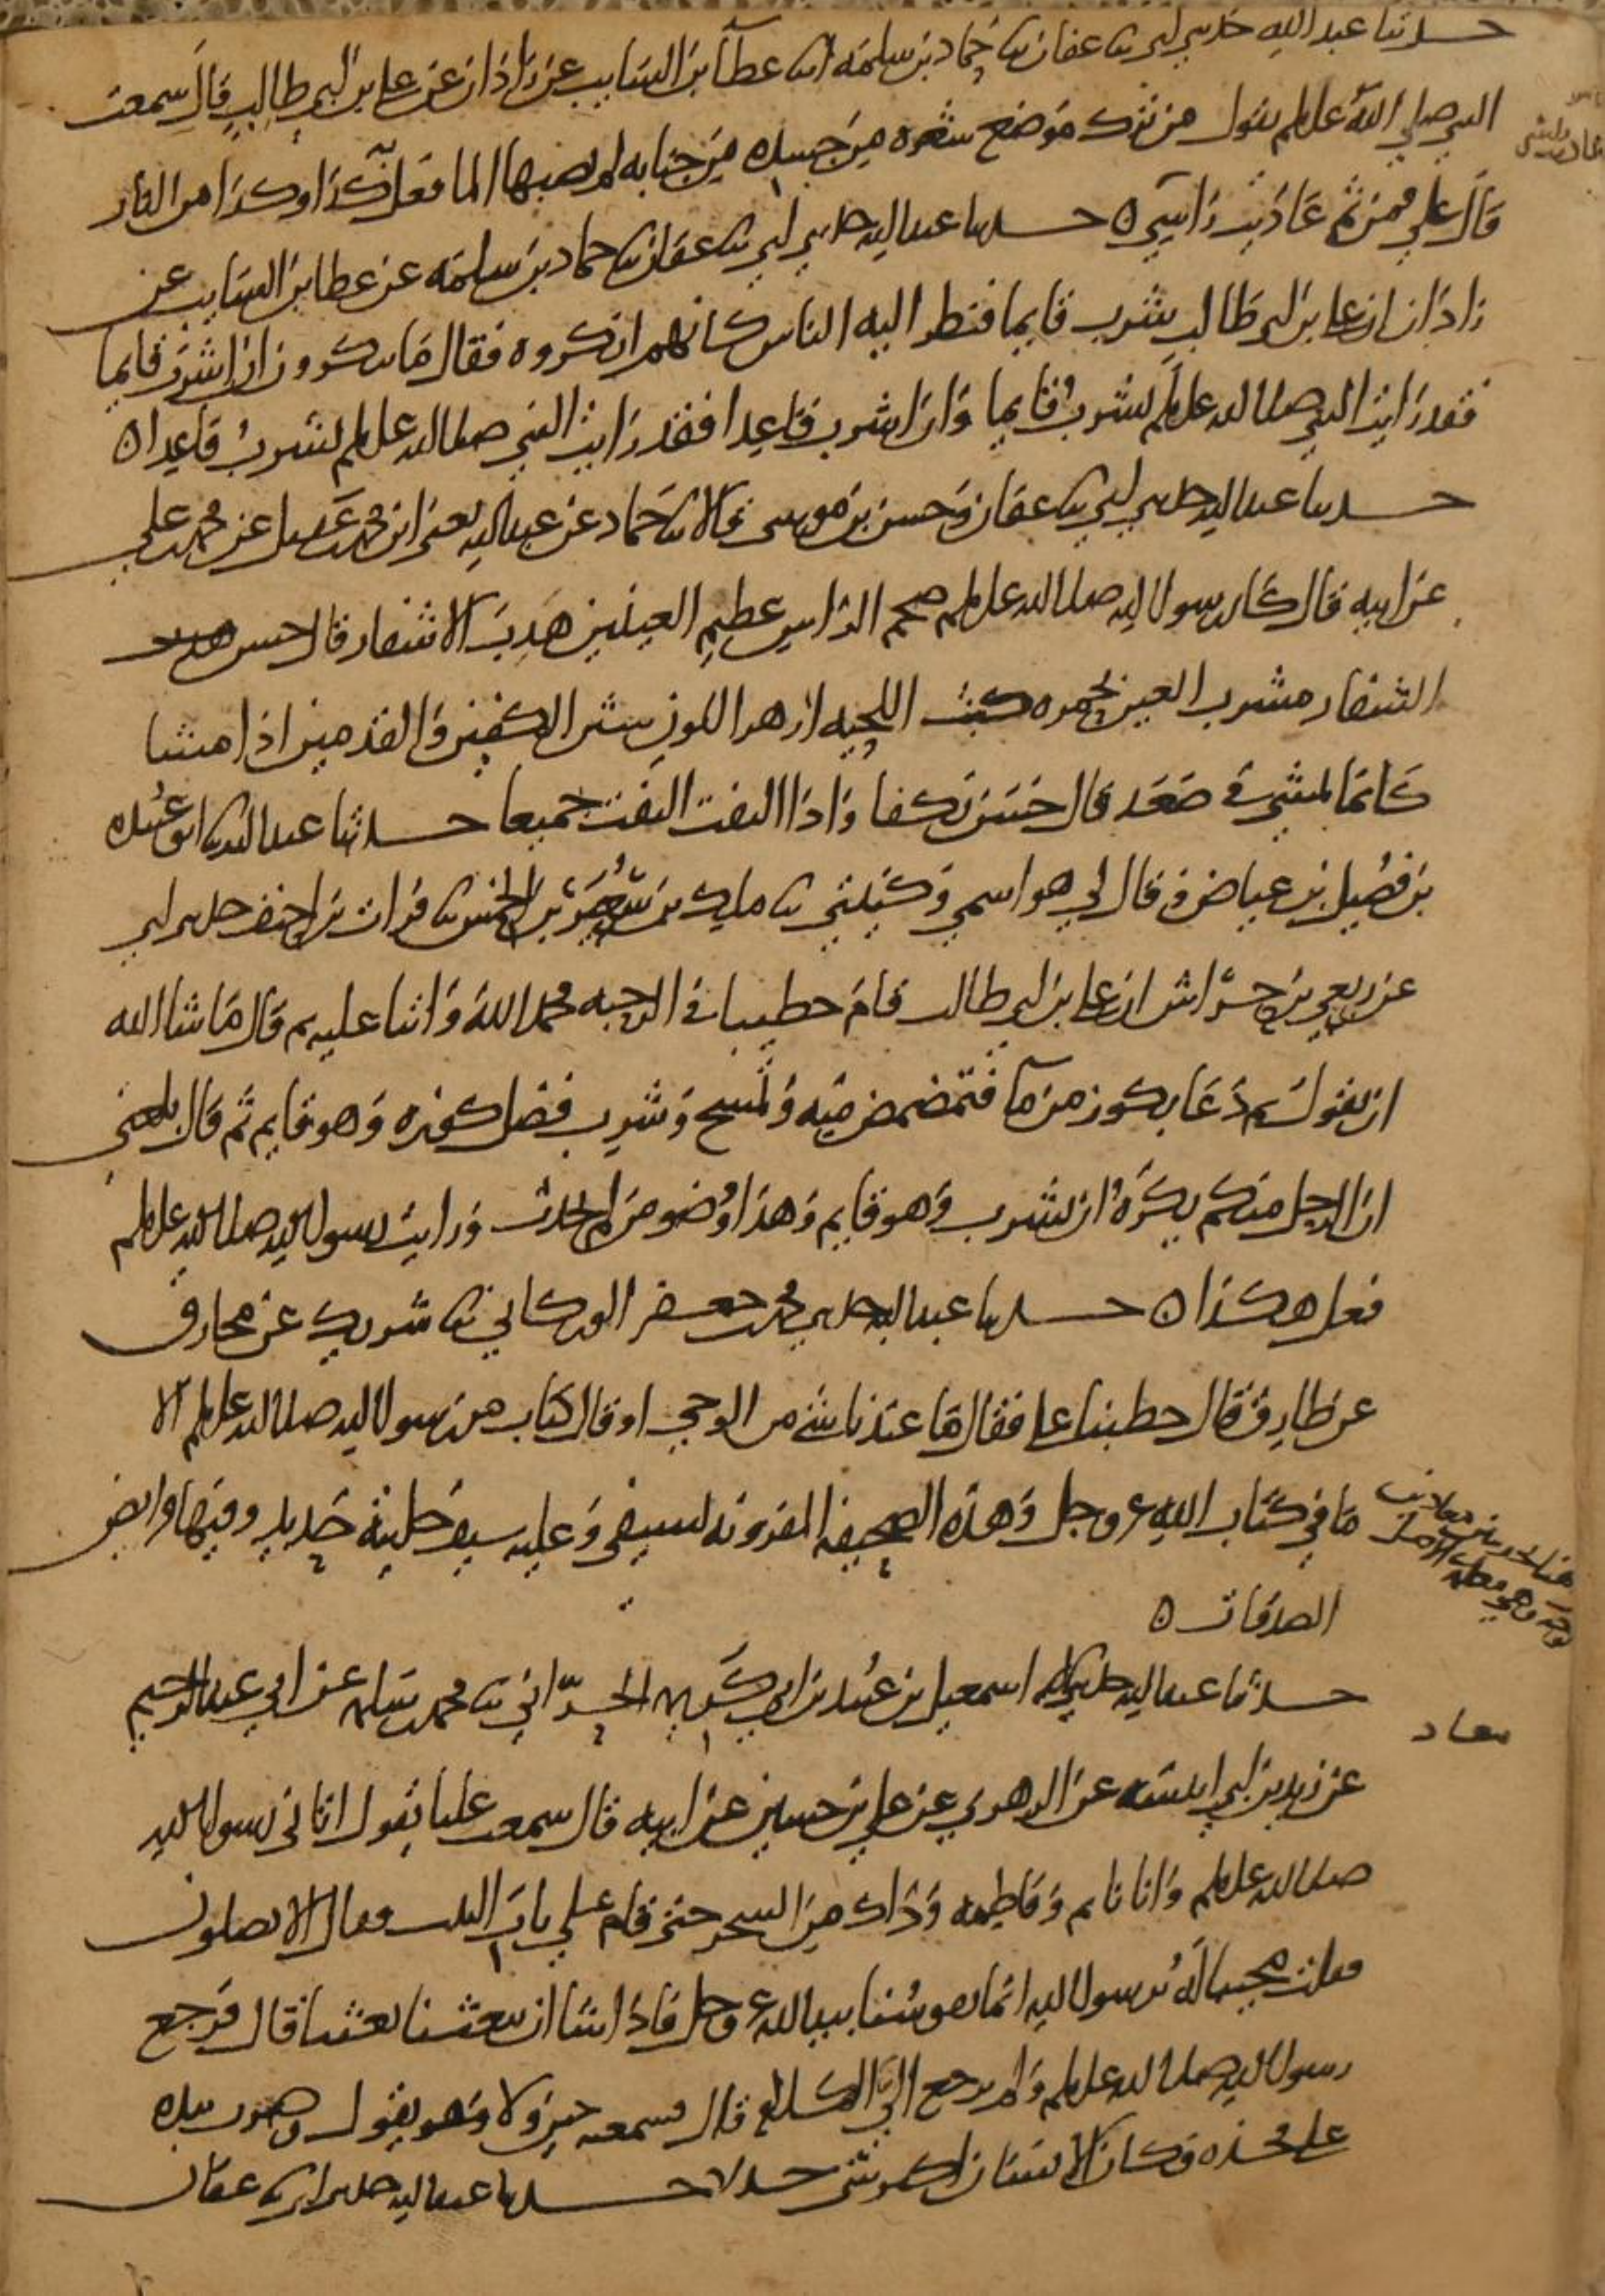 حدثنا عبد الله حدثني ابي ثنا عفان ثنا حماد بن سلمه انا عطآ بن السايب عن زاذان عن علي بن ابي طالب قال سمعت
النبي صلى الله عليه وسلم يقول من ترك موضع شعره من جسده من جنابه لم يصبها الما فعل به كذا وكذا من النار
قال علي فمن ثم عاديت راسي ه حدثنا عبد الله حدثني ابي ثنا عفان ثنا حماد بن سلمه عن عطا بن السايب عن
زاذان ان علي بن ابي طالب شرب قايما فنظر اليه الناس كانهم انكروه فقال ما تنكرون ان اشرب قايما
فقد رايت النبي صلى الله عليه وسلم يشرب قايما وان اشرب قاعدا فقد رايت النبي صلى الله عليه وسلم يشرب قاعدا ه
حدثنا عبد الله حدثني ابي ثنا عفان وحسن بن موسى قالا ثنا حماد عن عبد الله يعني ابن محمد بن عقيل عن محمد بن علي
عن ابيه قال كان رسول الله صلى الله عليه وسلم ضخم الراس عظيم العينين هدب الاشفار قال حسن
الشفار مشرب العين بحمره كث اللحيه ازهر اللون شثن الكفين والقدمين اذا مشا
كانما يمشي في صعد قال حسن تكفا واذا التفت التفت جميعا حدثنا عبد الله ثنا ابو عبيده
بن فضيل بن عياض وقال لي هو اسمي وكنيتي ثنا مالك بن سعير بن الخمس ثنا فرات بن احنف حدثني ابي
عن ربعي بن حراش ان علي بن ابي طالب قام خطيبا في الرحبه فحمد الله واثنا عليه ثم قال ما شا الله
ان يقول ثم دعا بكوز من مآ فتمضمض منه وتمسح وشرب فضل كوزه وهو قايم ثم قال بلغني
ان الرجل منكم يكره ان يشرب وهو قايم وهذا وضو من لم يحدث ورايت رسول الله صلى الله عليه وسلم
فعل هكذا ه حدثنا عبد الله حدثني محمد بن جعفر الوركاني ثنا شريك عن مخارق
عن طارق قال خطبنا علي فقال ما عندنا شي من الوحي او قال كتاب من رسول الله صلى الله عليه وسلم الا
ما في كتاب الله عز وجل وهذه الصحيفه المقرونه بسيفي وعليه سيف حليته حديد وفيها فرايض
الصدقات ه
حدثنا عبد الله حدثني اسمعيل بن عبيد بن ابي كريمه الحراني ثنا محمد بن سلمه عن ابي عبد الرحيم
معاد
عن زيد بن ابي انيسه عن الزهري عن علي بن حسين عن ابيه قال سمعت عليا يقول اتاني رسول الله
صلى الله عليه وسلم وانا نايم وفاطمه وذاك من السحر حتى قام على باب البيت فقال الا تصلون
فقلت مجيبا له يرسول الله انما نفوسنا بيد الله عز وجل فاذا شا ان يبعثنا بعثنا قال فرجع
رسول الله صلى الله عليه وسلم ولم يرجع الي الكلام قال فسمعته حين ولا وهو يقول وضرب بيده
على فخذه وكان الانسان اكثر شي جدلا حدثنا عبد الله حدثني ابي ثنا عفان